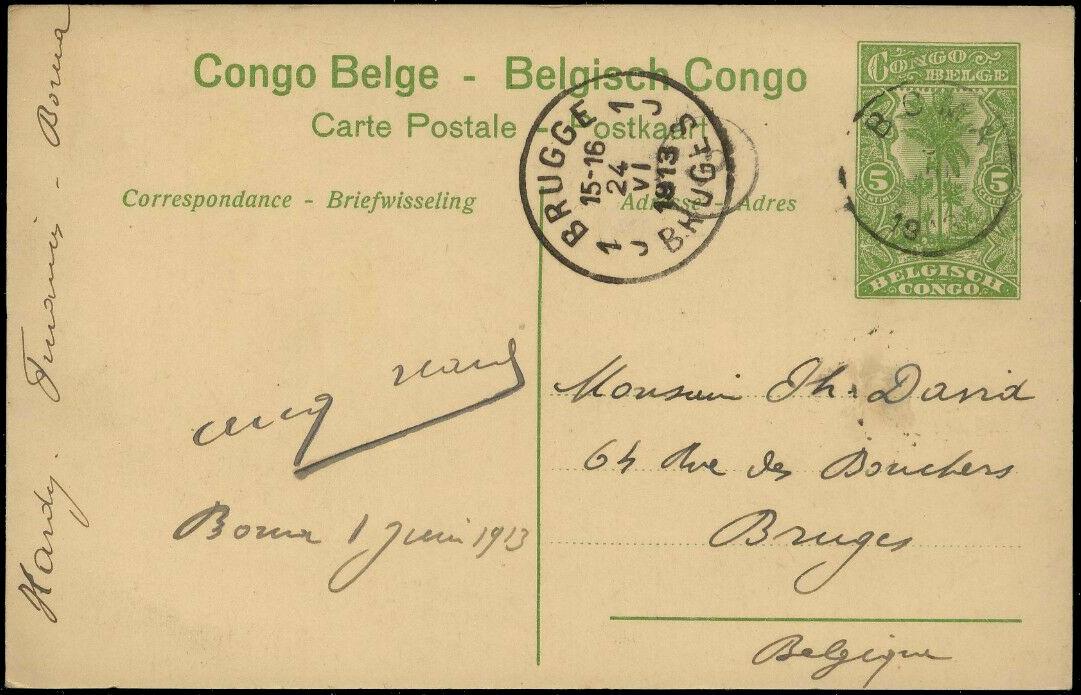 Congo Belge - Belgisch Congo
Carte Postale - Postkaart
Correspondance - Briefwisseling
Adresse - Adres
CONGO
BELGE
5 5
BELGISCH
CONGO
BRUGGE
1 J
15-16
24
VI
1913
BRUGES
1 J
BOMA
19
Hardy. Finances - Boma
Boma 1 Juin 1913
Monsieur Th. David
64 Rue des Bouchers
Bruges
Belgique